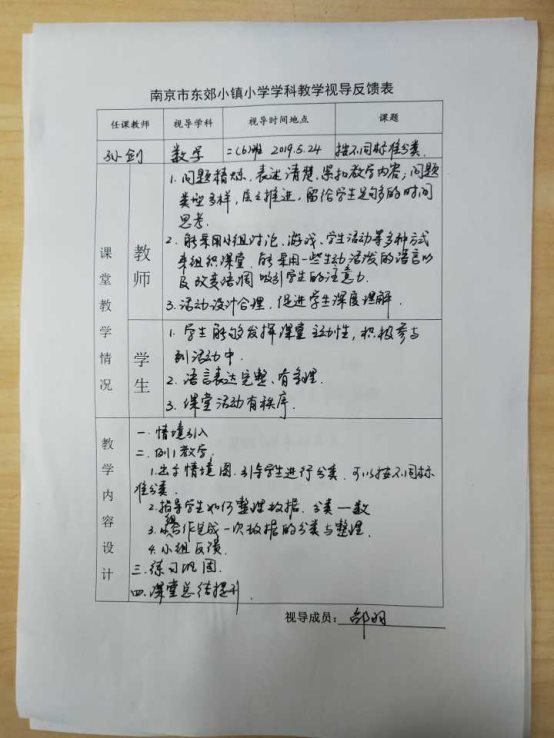 南京市东郊小镇小学学科教学视导反馈表
任课教师 视导学科 视导时间地点 课题
孙剑 数学 二(6)班 2019.5.24 按不同标准分类.
课堂教学情况
教师
1. 问题精炼、表述清楚、紧扣教学内容,问题
类型多样,层层推进,留给学生足够多的时间
思考.
2. 能采用小组讨论、游戏、学生活动等多种方式
来组织课堂 能采用一些生动活泼的语言以
及改变语调 吸引学生的注意力.
3. 活动设计合理,促进学生深度理解.
学生
1. 学生能够发挥课堂主动性,积极参与
到活动中.
2. 语言表达完整、有条理.
3. 课堂活动有秩序.
教学内容设计
一. 情境引入
二. 例1教学.
1. 出示情境图.引导学生进行分类.可以按不同标
准分类.
2. 指导学生如何整理数据.分类一数
3. 合作完成一次数据的分类与整理.
4. 小组反馈.
三. 练习巩固.
四. 课堂总结提升.
视导成员: 邵羽